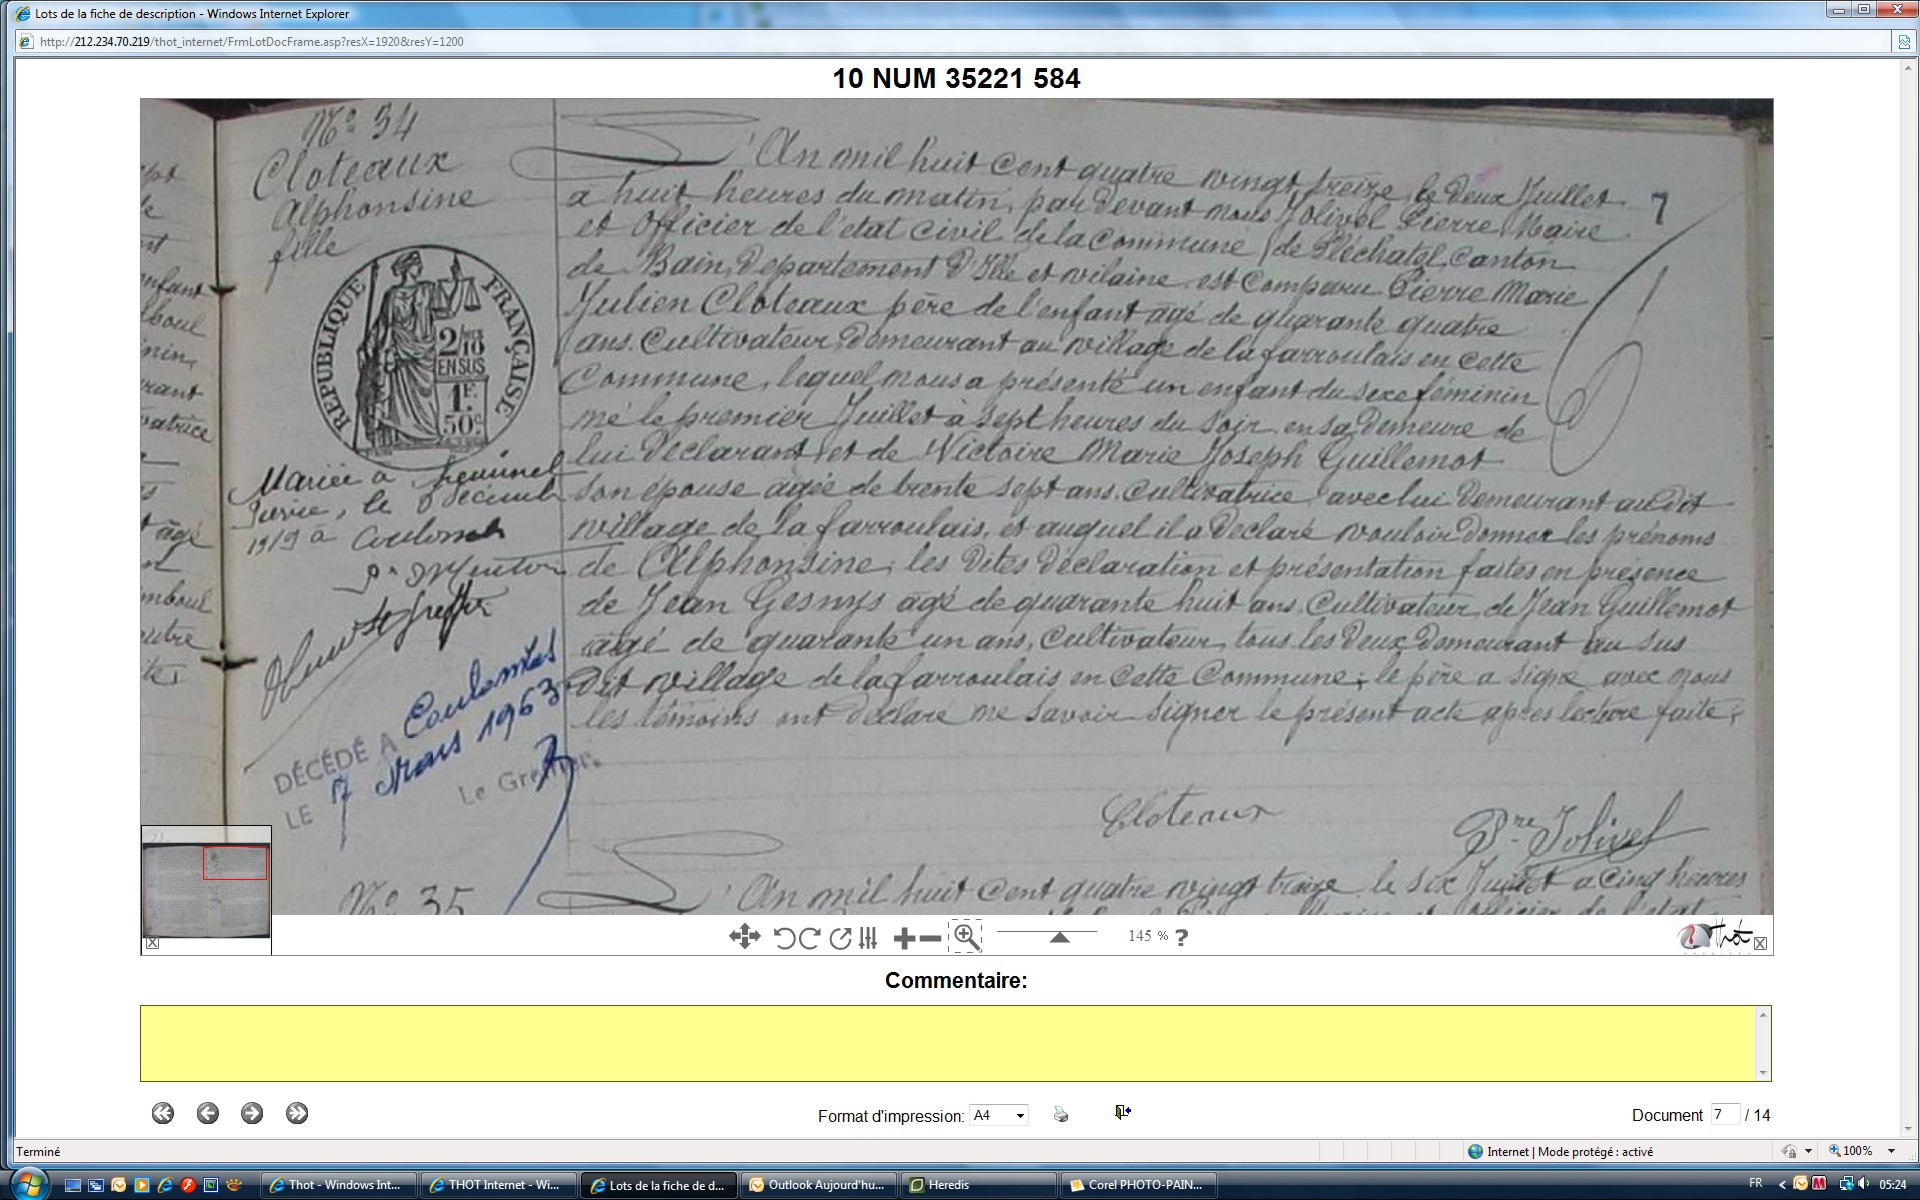 Lots de la fiche de description - Windows Internet Explorer
http://212.234.70.219/thot_internet/FrmLotDocFrame.asp?resX=1920&resY=1200
10 NUM 35221 584
N° 34
Cloteaux
Alphonsine
fille
RÉPUBLIQUE FRANÇAISE
2/10
EN SUS
1F.
50c.
Mariée à
le
1919 à
DÉCÉDÉ A Coulommes
LE 7 Mars 1963
Le Greffier
L'An mil huit cent quatre vingt treize, le deux Juillet
a huit heures du matin, par devant nous Jolivel Pierre Maire
et Officier de l'état civil de la Commune de Pléchatel, Canton
de Bain, Département d'Ille et vilaine est comparu Pierre Marie
Julien Cloteaux père de l'enfant âgé de quarante quatre
ans. Cultivateur, demeurant au village de la farroulais en cette
Commune, lequel nous a présenté un enfant du sexe féminin
né le premier Juillet à sept heures du soir, en sa demeure de
lui Déclarant et de Victoire Marie Joseph Guillemot
son épouse agée de trente sept ans. Cultivatrice avec lui demeurant au dit
village de la farroulais, et auquel il a déclaré vouloir donner les prénoms
de Alphonsine, les dites déclaration et présentation faites en présence
de Jean âgé de quarante huit ans, Cultivateur, de Jean Guillemot
âgé de quarante un ans, Cultivateur, tous les deux demeurant au sus
dit village de la farroulais en cette Commune; le père a signé avec nous
les témoins ont déclaré ne savoir signer le présent acte après lecture faite;
7
Cloteaux
Pre Jolivel
N° 35
L'An mil huit cent quatre vingt treize le six Juillet a cinq heures
145 % ?
Thot
Commentaire:
Format d'impression: A4
Document 7 / 14
Terminé
Internet | Mode protégé : activé
100%
Thot - Windows Int...
THOT Internet - Wi...
Lots de la fiche de d...
Outlook Aujourd'hu...
Heredis
Corel PHOTO-PAIN...
FR
05:24